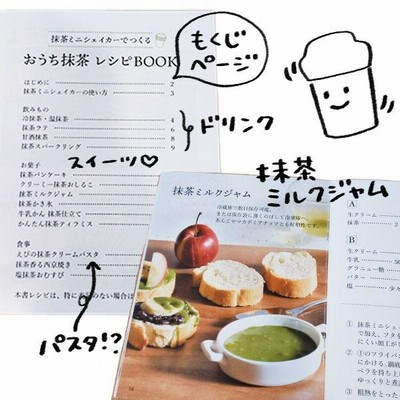 抹茶ミニシェイカーでつくる
おうち抹茶 レシピBOOK
はじめに 2
抹茶ミニシェイカーの使い方 3
飲みもの
冷抹茶・温抹茶 4
抹茶ラテ 6
甘酒抹茶 8
抹茶スパークリング 9
お菓子
抹茶パンケーキ
クリーミー抹茶おしるこ
抹茶ミルクジャム
抹茶かき氷
牛乳かん 抹茶仕立て
かんたん抹茶ティラミス
食事
えびの抹茶クリームパスタ
抹茶香る西京焼き
塩抹茶おむすび
本書レシピは、特に
ない場合は
もくじ
ページ
ドリンク
スイーツ♡
パスタ!?
抹茶
ミルクジャム
抹茶ミルクジャム
冷蔵庫で数日保存可能。
A
生クリーム
抹茶
B
生クリーム
牛乳
グラニュー糖
塩
① 抹茶ミニシェ
で加え、フタを
にくい加工がし
② ①のフライパン
にかける。鍋底
ベラを持ち上
ゆっくりと煮
③ 粗熱をとった